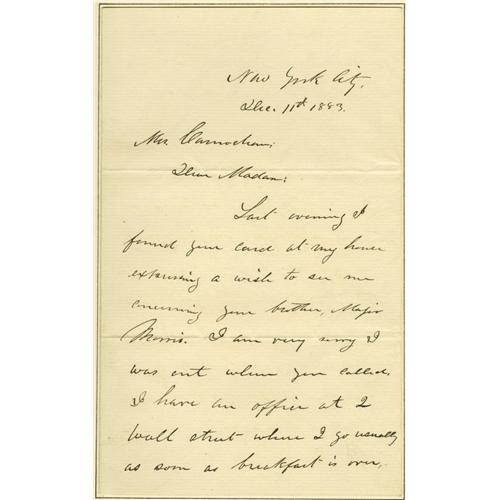 New York City,
Dec. 11th 1883.
Mrs. Carnochan;
Dear Madam;
Last evening I
found your card at my house
expressing a wish to see me
concerning your brother, Major
Morris. I am very sorry I
was out when you called.
I have an office at 2
Wall street where I go usually
as soon as breakfast is over,